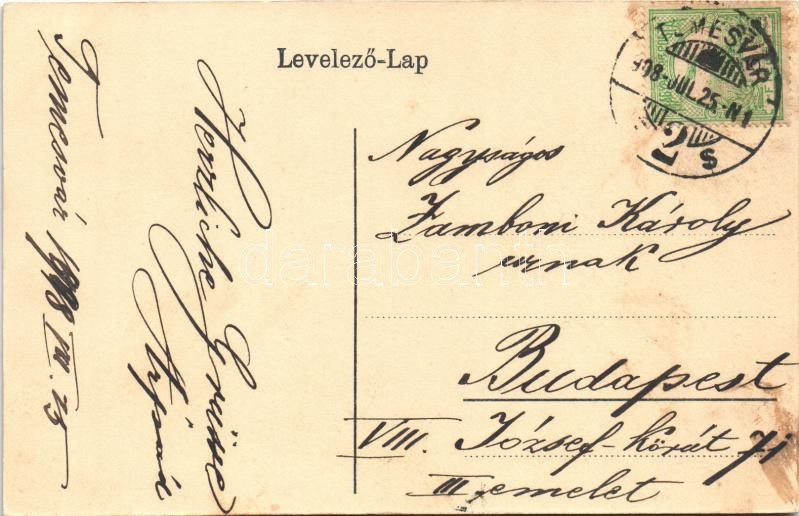 Levelező-Lap
TEMESVÁR
908 JUL. 25. N1
2 S
Temesvár 1908 VII. 25
Herzliche Grüsse
Nagyságos
Zamboni Károly
urnak
Budapest
VIII. József-körút 71
III emelet
darabanth